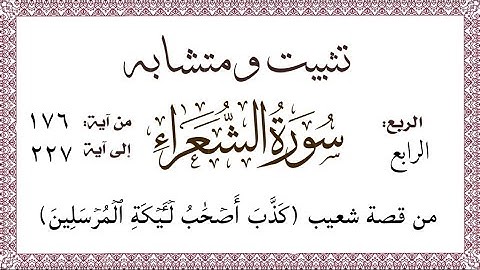 تثبيت و متشابه
الربع:
الرابع
سُورَةُ الشُّعَرَاء
من آية: ١٧٦
إلى آية ٢٢٧
من قصة شعيب (كَذَّبَ أَصْحَٰبُ لْـَٔيْكَةِ ٱلْمُرْسَلِينَ)